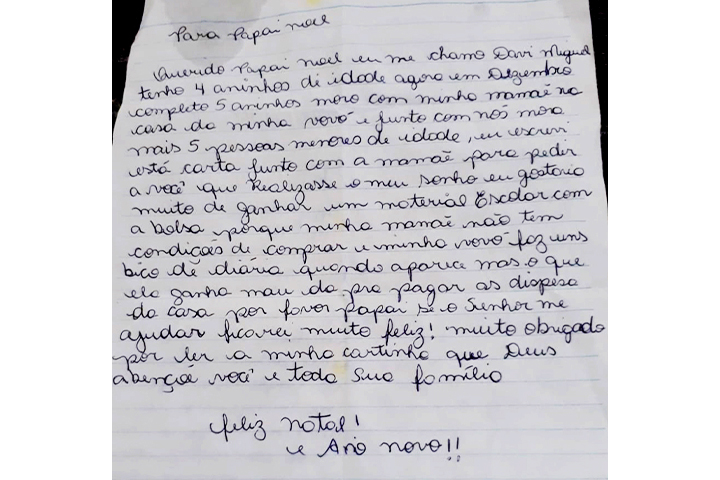 Para Papai noel
Querido Papai noel eu me chamo Davi Miguel
tenho 4 aninhos di idade agora em Dezembro
completo 5 aninhos moro com minha mamãe na
casa da minha vovó e junto com nós mora
mais 5 pessoas menores de idade, eu escrevi
está carta junto com a mamãe para pedir
a você que Realizasse o meu sonho eu gostaria
muito de ganhar um material Escolar com
a bolsa porque minha mamãe não tem
condição de comprar e minha vovó faz uns
bico de diária quando aparice mas o que
ela ganha mau da pra pagar as dispesa
da casa por favor Papai se o Senhor me
ajudar ficarei muito feliz! muito obrigado
por ler a minha cartinha que Deus
abençõe você e toda Sua família
feliz natal!
e Ano novo!!